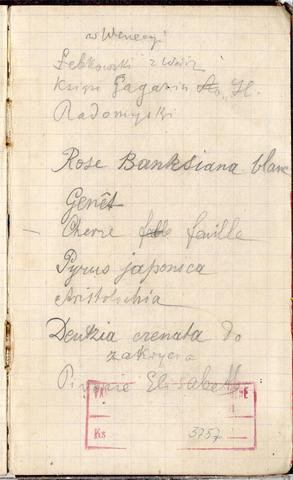 w Wenecyi
Łętkowski z Wóiz
Książę Gagarin H.
Radomyski
Rose Banksiana blanc
Genêt
— Cherre feuille
Pyrus japonica
Aristolochia
Deutzia crenata do
zakrycia
Pivoine Elisabeth
PA NE
Ks 3757